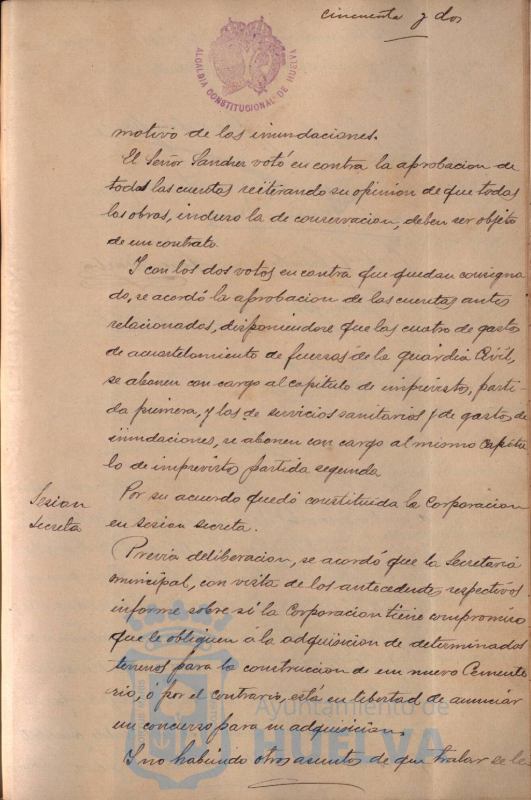 cincuenta y dos
ALCALDÍA CONSTITUCIONAL DE HUELVA
motivo de las inundaciones.
El Señor Sander votó en contra la aprobacion de
todas las cuentas reiterando su opinion de que todas
las obras, incluso la de conservacion, deben ser objeto
de un contrato.
I con los dos votos en contra que quedan consigna-
do, se acordó la aprobacion de las cuentas antes
relacionadas, disponiendose que las cuatro de gastos
de acuartelamiento de fuerzas de la guardia Civil,
se abonen con cargo al capitulo de imprevistos, parti-
da primera, y las de servicios sanitarios y de gastos de
inundaciones, se abonen con cargo al mismo Capitu-
lo de imprevistos partida segunda
Sesion
secreta
Por su acuerdo quedó constituida la Corporacion
en sesion secreta.
Previa deliberacion, se acordó que la Secretaria
municipal, con vista de los antecedentes respectivos
informe sobre si la Corporacion tiene compromiso
que le obliguen á la adquisicion de determinados
terrenos para la construccion de un nuevo Cemente-
rio, ó por el contrario, está en libertad de anunciar
un concurso para su adquisicion.
I no habiendo otros asuntos de que tratar se le-
Ayuntamiento de
HUELVA